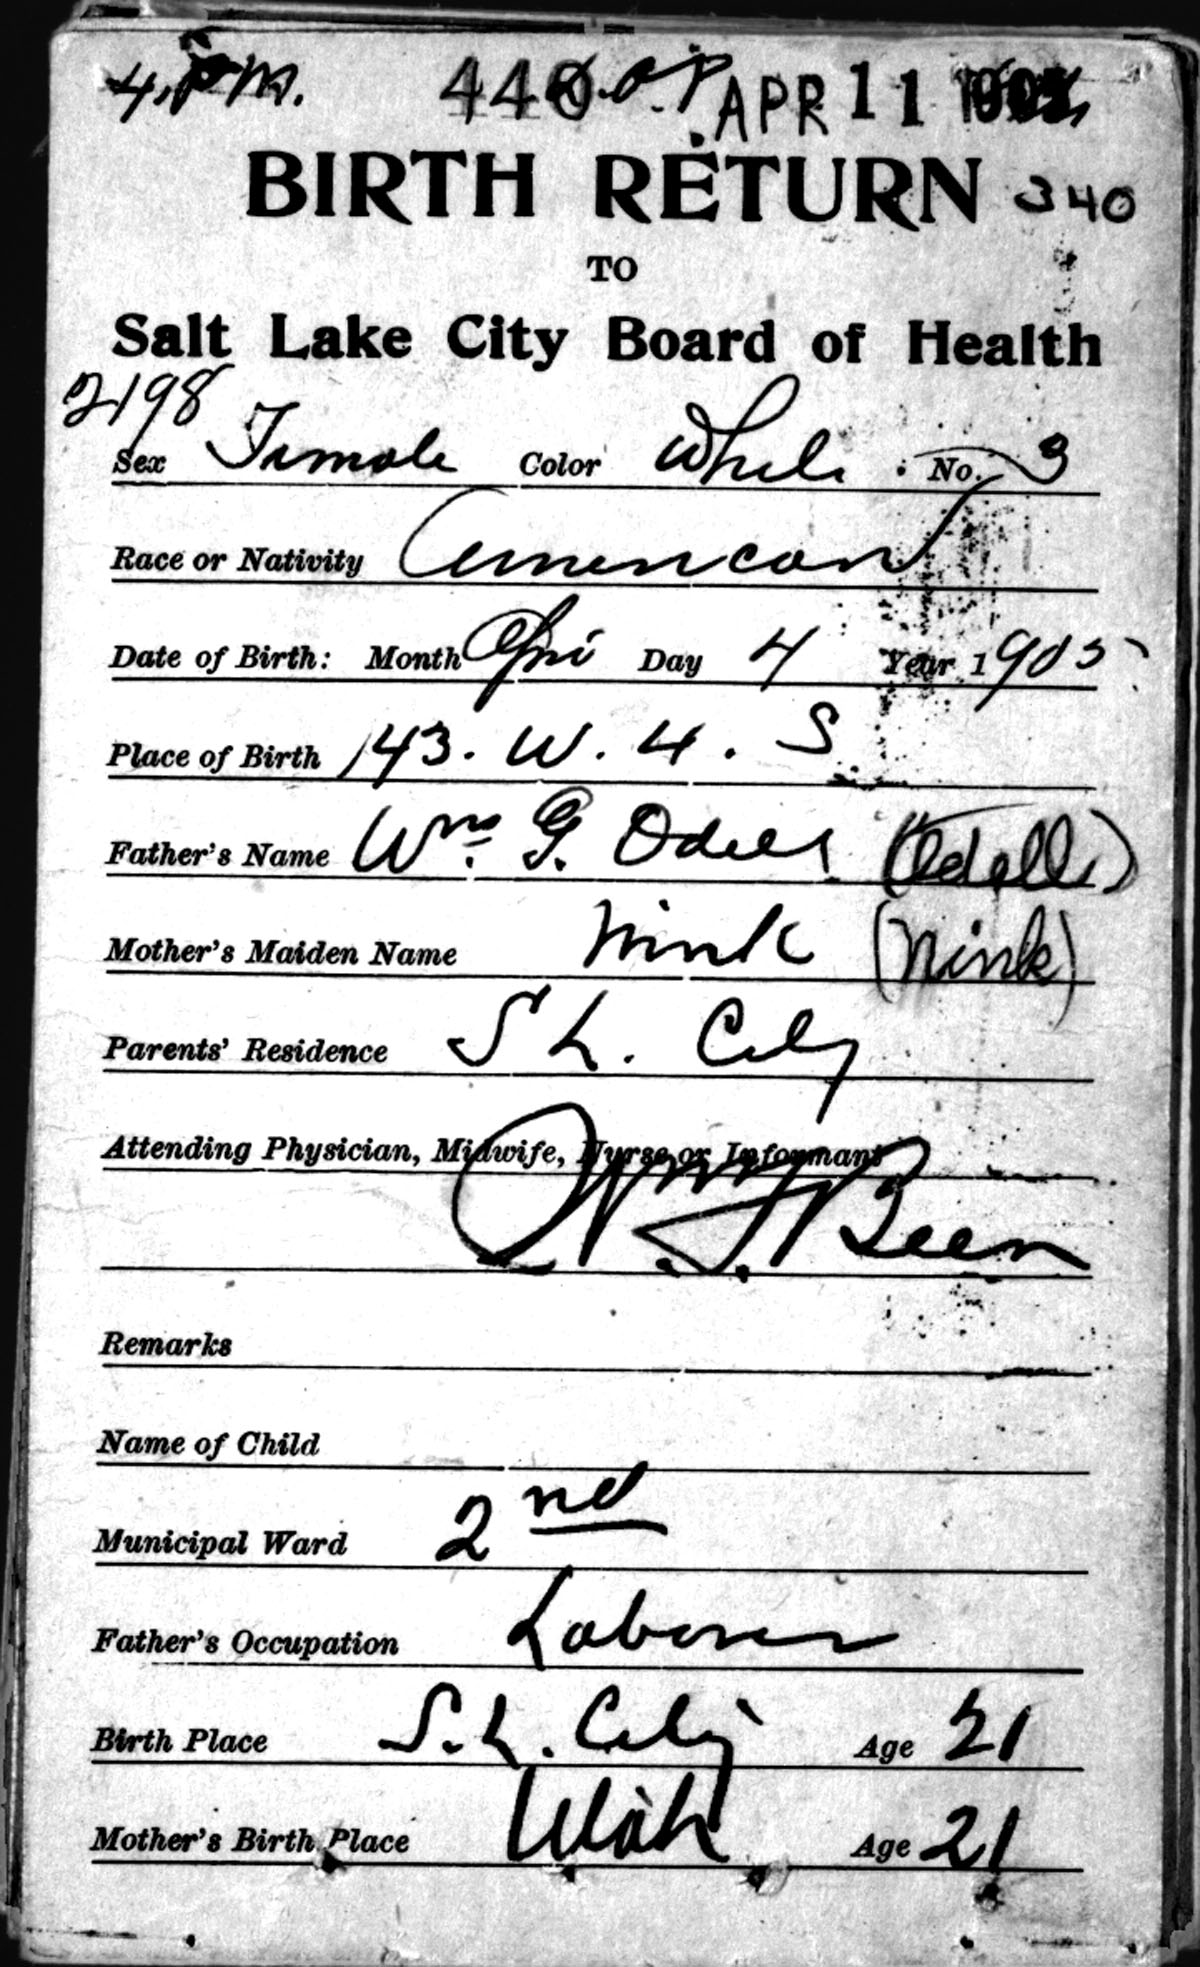 4. P M. 440 APR 11 1905
BIRTH RETURN 340
TO
Salt Lake City Board of Health
2198
Sex Female Color White No. 3
Race or Nativity American
Date of Birth: Month Apri Day 4 Year 1905
Place of Birth 143. W. 4. S
Father's Name Wm. G. Odell (Odell)
Mother's Maiden Name Nink (Nink)
Parents' Residence S L. City
Attending Physician, Midwife, Nurse or Informant
Beer
Remarks
Name of Child
Municipal Ward 2nd
Father's Occupation Laborer
Birth Place S. L. City Age 21
Mother's Birth Place Utah Age 21